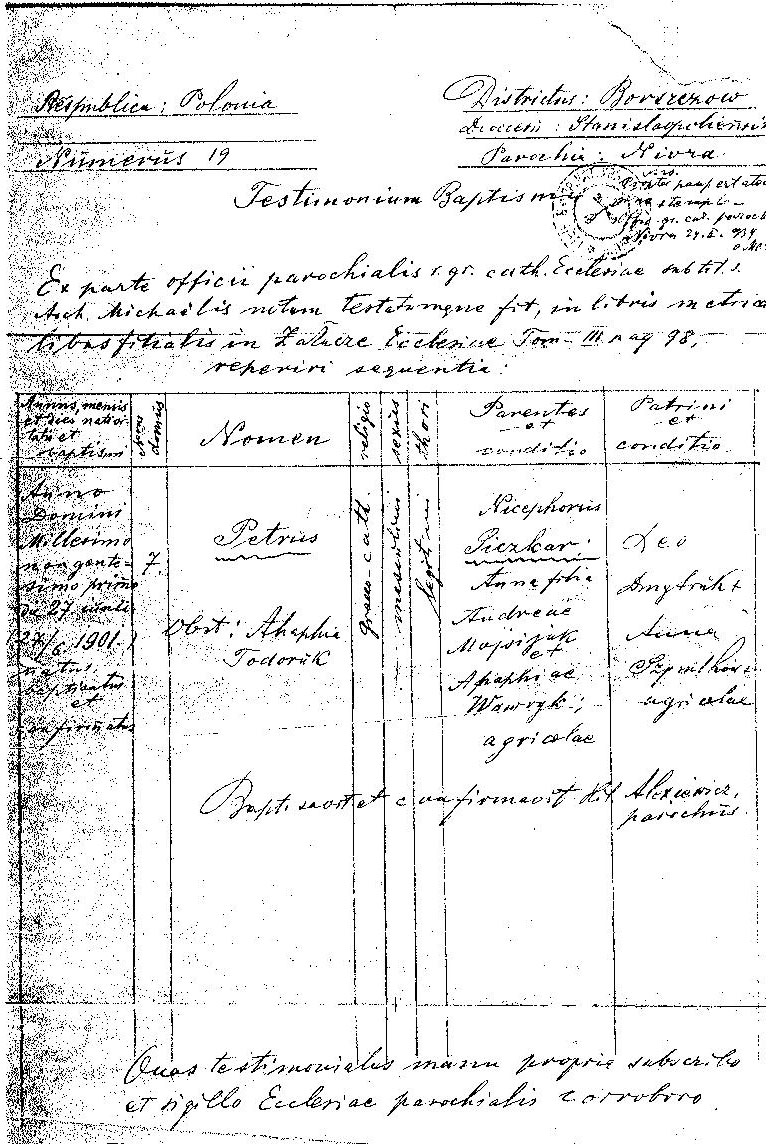 Respublica: Polonia
Districtus: Borszczow
Diocesis: Stanislaopoliensis
Numerus 19
Parochia: Nivra
Testimonium Baptismi
paupertatem
stampl.
gr. cat. paroch
Nivra 934
Ex parte officii parochialis r. gr. cath. Ecclesiae sub tit. s.
Arch. Michaëlis notum testatumque fit, in libris metrica
libus filialis in Zalucze Ecclesiae Tom III pag 98,
reperiri sequentia:
Annus, mensis
et dies nativi-
tatis et
baptismi
domus
Nomen
religio
sexus
thori
Parentes
et
conditio
Patrini
et
conditio
Anno
Domini
Millesimo
nongente-
simo primo
die 27
(27/6 1901.)
natus
baptisatus
et
confirmatus
7.
Petrus
Obst: Ahaphia
Todoruk
graeco cath.
masculini
legitimi
Nicephorus
Pieczkar
Anna filia
Andreae
Mojsijak
et
Apaphiae
Wawryk;
agricolae
Leo
Dmytruk +
Anna
agricolae
Baptisavit et confirmavit Alexiewicz,
parochus.
Quas testimoniales manu propria subscribo
et sigillo Ecclesiae parochialis corroboro.